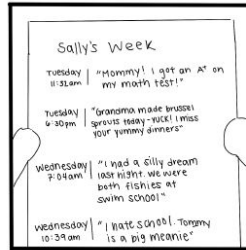 Sally's Week
Tuesday
11:32am
"Mommy! I got an A+ on
my math test!"
Tuesday
6:30pm
"Grandma made brussel
sprouts today - YUCK! I miss
your yummy dinners"
Wednesday
7:04am
"I had a silly dream
last night. we were
both fishies at
swim school"
Wednesday
10:39am
"I hate school. Tommy
is a big meanie"